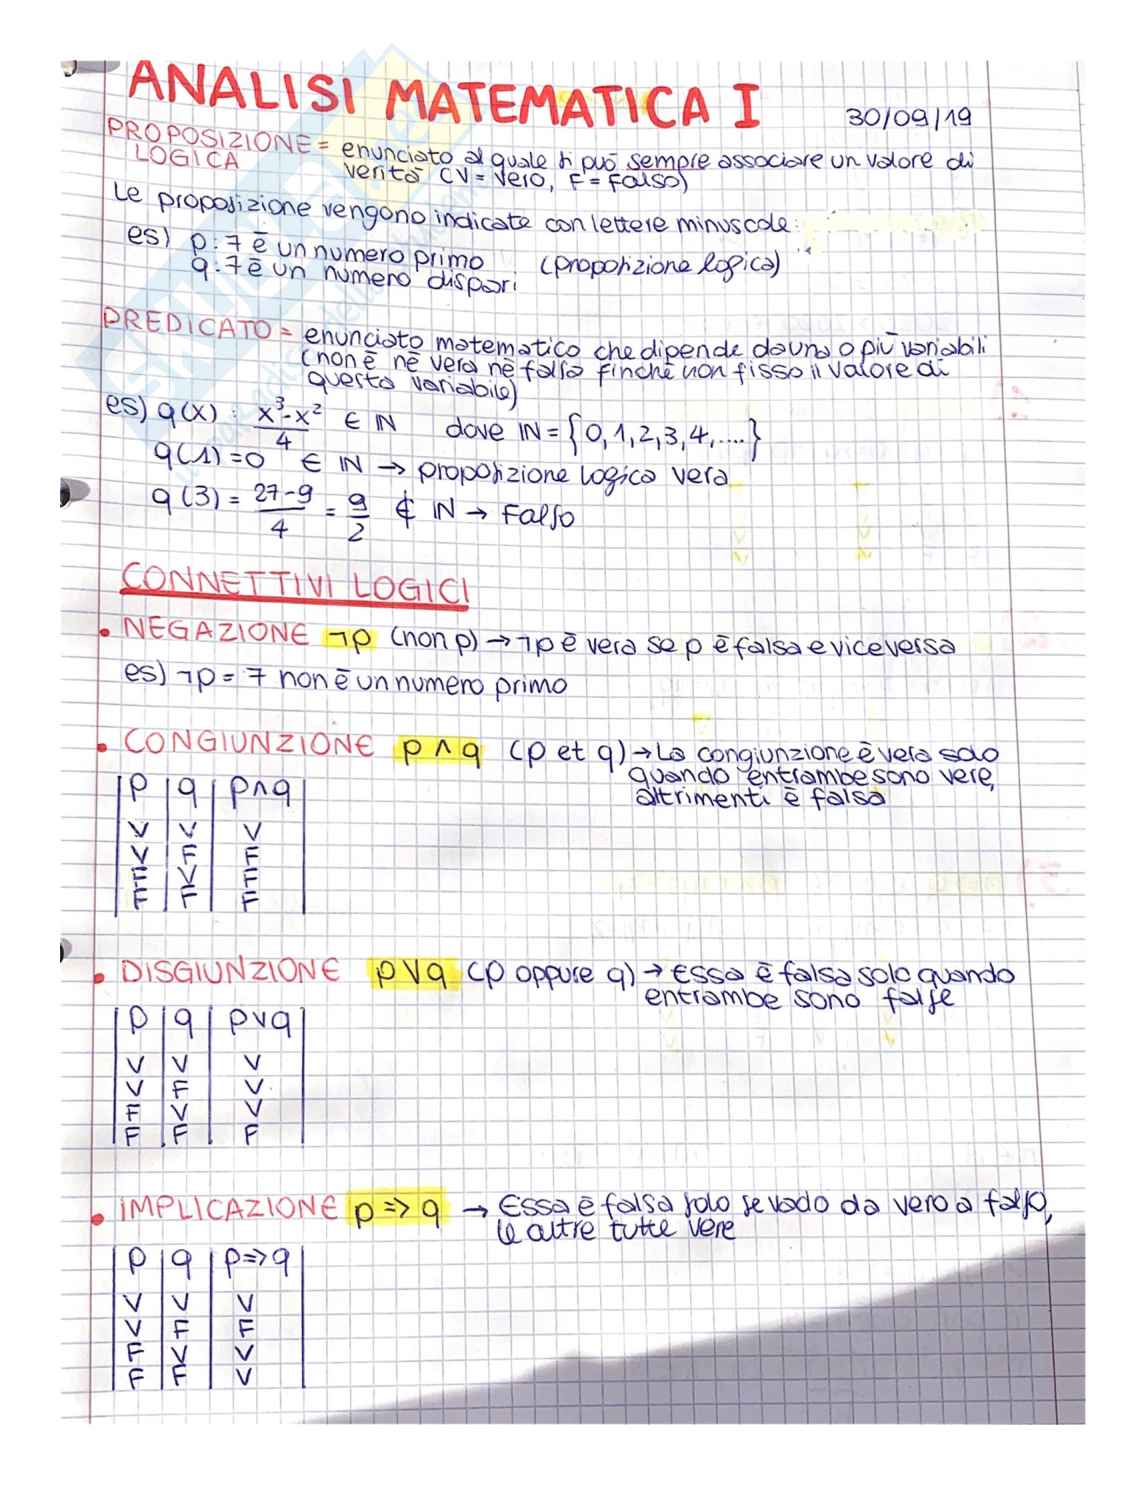 ANALISI MATEMATICA I
30/09/19
PROPOSIZIONE = enunciato al quale si può sempre associare un valore di
LOGICA verità (V = vero, F = falso)
Le proposizione vengono indicate con lettere minuscole:
es) p: 7 è un numero primo (proposizione logica)
q: 7 è un numero dispari
PREDICATO = enunciato matematico che dipende da una o più variabili
(non è nè vera nè falsa finchè non fisso il valore di
questa variabile)
es) q(x) : x³-x²/4 ∈ ℕ dove ℕ = {0, 1, 2, 3, 4, ....}
q(1) = 0 ∈ ℕ → proposizione logica vera
q(3) = 27-9/4 = 9/2 ∉ ℕ → Falso
CONNETTIVI LOGICI
• NEGAZIONE ¬p (non p) → ¬p è vera se p è falsa e viceversa
es) ¬p = 7 non è un numero primo
• CONGIUNZIONE p ∧ q (p et q) → La congiunzione è vera solo
quando entrambe sono vere,
altrimenti è falsa
p q p∧q
V V V
V F F
F V F
F F F
• DISGIUNZIONE p∨q (p oppure q) → Essa è falsa solo quando
entrambe sono false
p q p∨q
V V V
V F V
F V V
F F F
• IMPLICAZIONE p => q → Essa è falsa solo se vado da vero a falso,
le altre tutte vere
p q p=>q
V V V
V F F
F V V
F F V